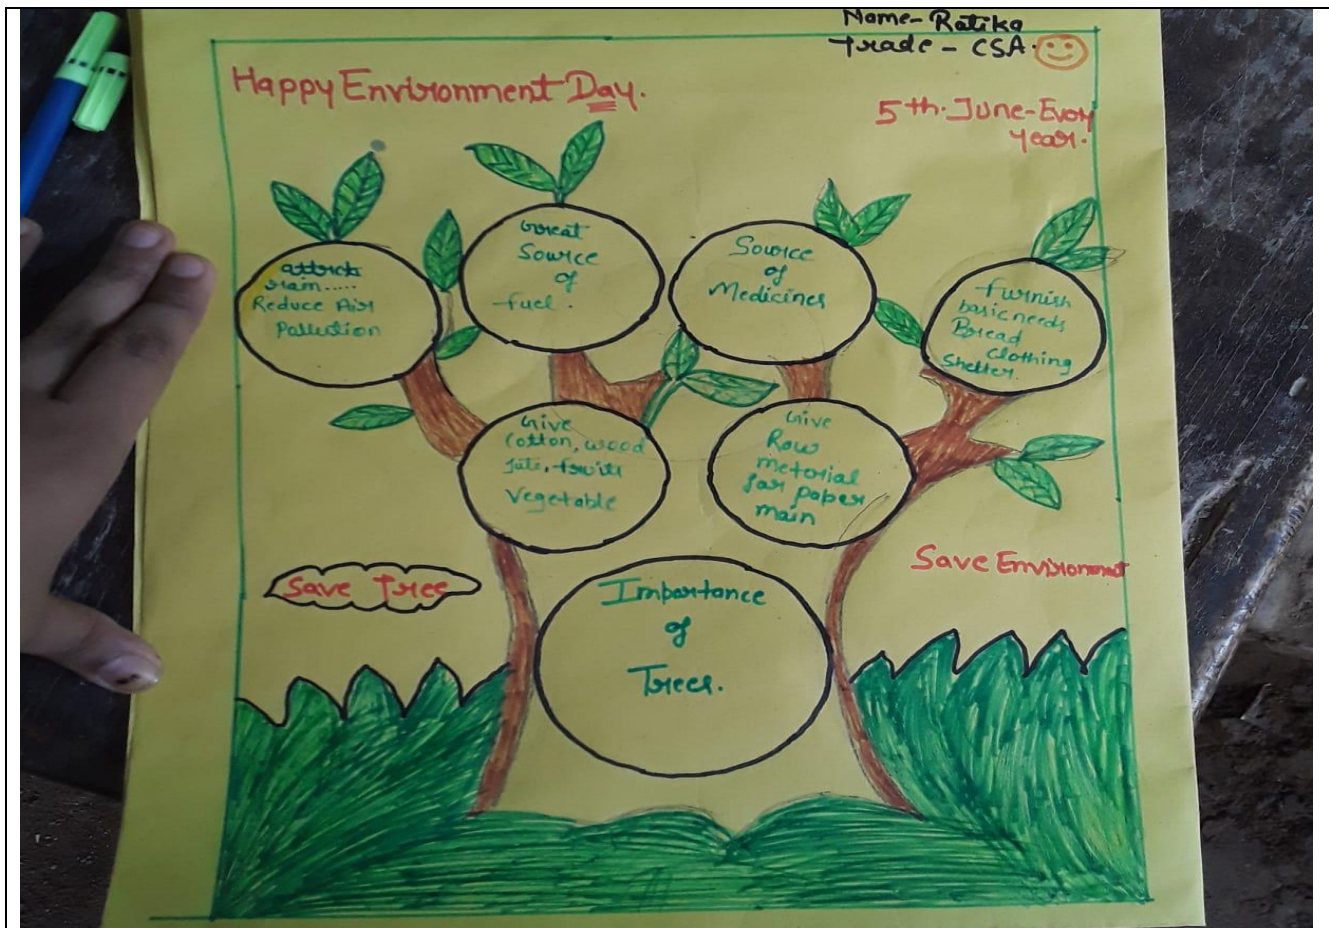 Name- Ratika
Trade - CSA.
Happy Environment Day.
5th. June - Every
year.
attrict
rain.....
Reduce Air
Pallution
Great
Source
of
fuel.
Source
of
Medicines
furnish
basic needs
Bread
clothing
Shelter.
Give
Cotton, wood
Jute, fruits
Vegetable
Give
Row
meterial
for paper
main
Save Tree
Save Environment
Importance
of
Trees.